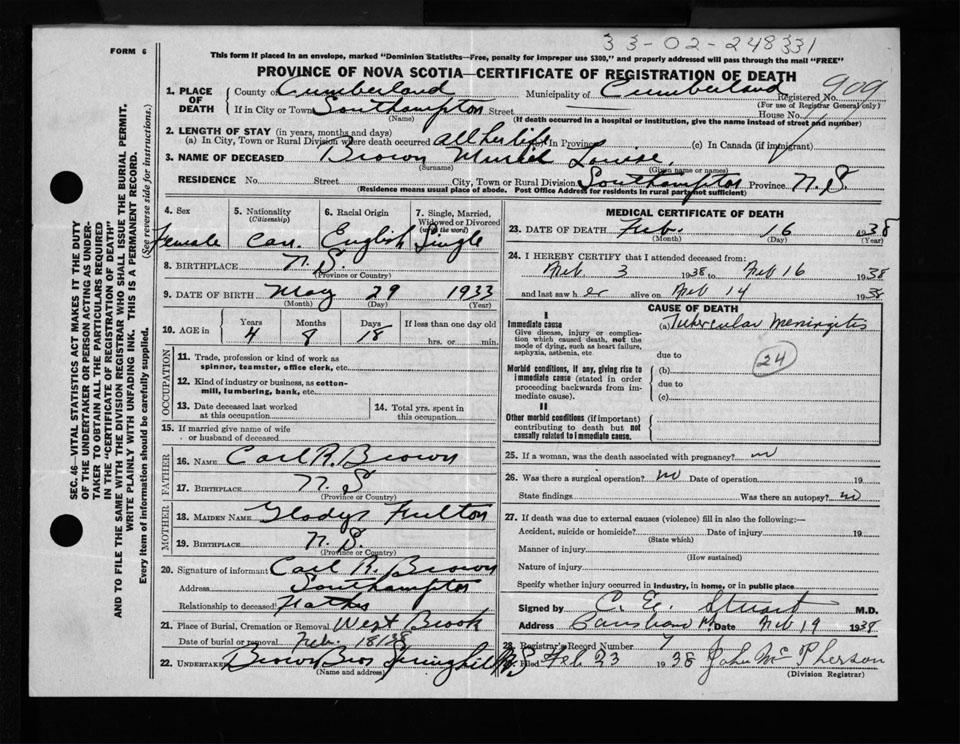 33-02-248331
FORM 6
This form if placed in an envelope, marked "Dominion Statistics—Free, penalty for improper use $300," and properly addressed will pass through the mail "FREE"
PROVINCE OF NOVA SCOTIA—CERTIFICATE OF REGISTRATION OF DEATH
1. PLACE OF DEATH County of Cumberland Municipality of Cumberland Registered No. 909
(For use of Registrar General only)
If in City or Town Southampton Street House No.
(Name) (If death occurred in a hospital or institution, give the name instead of street and number)
2. LENGTH OF STAY (in years, months and days)
(a) In City, Town or Rural Division where death occurred all her life (b) In Province (c) In Canada (if immigrant)
3. NAME OF DECEASED Brown Muriel Louise
(Surname) (Given name or names)
RESIDENCE No. Street City, Town or Rural Division Southampton Province N.S.
(Residence means usual place of abode. Post Office Address for residents in rural parts not sufficient)
4. Sex 5. Nationality 6. Racial Origin 7. Single, Married, Widowed or Divorced
(Citizenship) (write the word)
Female Can. English Single
8. BIRTHPLACE N.S.
(Province or Country)
9. DATE OF BIRTH May 29 1933
(Month) (Day) (Year)
10. AGE in Years Months Days If less than one day old
4 8 18 hrs. or min.
OCCUPATION
11. Trade, profession or kind of work as spinner, teamster, office clerk, etc.
12. Kind of industry or business, as cotton-mill, lumbering, bank, etc.
13. Date deceased last worked at this occupation
14. Total yrs. spent in this occupation
15. If married give name of wife or husband of deceased
FATHER
16. NAME Carl R. Brown
17. BIRTHPLACE N.S
(Province or Country)
MOTHER
18. MAIDEN NAME Gladys Fulton
19. BIRTHPLACE N.S.
(Province or Country)
20. Signature of informant Carl R. Brown
Address Southampton
Relationship to deceased Father
21. Place of Burial, Cremation or Removal West Brook
Date of burial or removal Feb. 18/38
22. UNDERTAKER Brown Bros Springhill N.S
(Name and address)
MEDICAL CERTIFICATE OF DEATH
23. DATE OF DEATH Feb. 16 1938
(Month) (Day) (Year)
24. I HEREBY CERTIFY that I attended deceased from
Feb 3 1938 to Feb 16 1938
and last saw her alive on Feb 14 1938
CAUSE OF DEATH
I
Immediate cause (a) Tubercular Meningitis
Give disease, injury or complication which caused death, not the mode of dying, such as heart failure, asphyxia, asthenia, etc
due to
24
Morbid conditions, if any, giving rise to immediate cause (stated in order proceeding backwards from immediate cause).
(b)
due to
(c)
II
Other morbid conditions (if important) contributing to death but not causally related to immediate cause.
25. If a woman, was the death associated with pregnancy? no
26. Was there a surgical operation? no Date of operation 19
State findings Was there an autopsy? no
27. If death was due to external causes (violence) fill in also the following:—
Accident, suicide or homicide? Date of injury 19
(State which)
Manner of injury
(How sustained)
Nature of injury
Specify whether injury occurred in industry, in home, or in public place
Signed by C. E. Stuart M.D.
Address Date Feb 19 1938
28. Registrar's Record Number 7
Filed Feb 23 1938 John McPherson
(Division Registrar)
SEC. 46—VITAL STATISTICS ACT MAKES IT THE DUTY
OF THE UNDERTAKER OR PERSON ACTING AS UNDER-
TAKER TO OBTAIN ALL THE PARTICULARS REQUIRED
IN THE "CERTIFICATE OF REGISTRATION OF DEATH"
AND TO FILE THE SAME WITH THE DIVISION REGISTRAR WHO SHALL ISSUE THE BURIAL PERMIT.
WRITE PLAINLY WITH UNFADING INK. THIS IS A PERMANENT RECORD.
Every item of information should be carefully supplied. (See reverse side for instructions.)